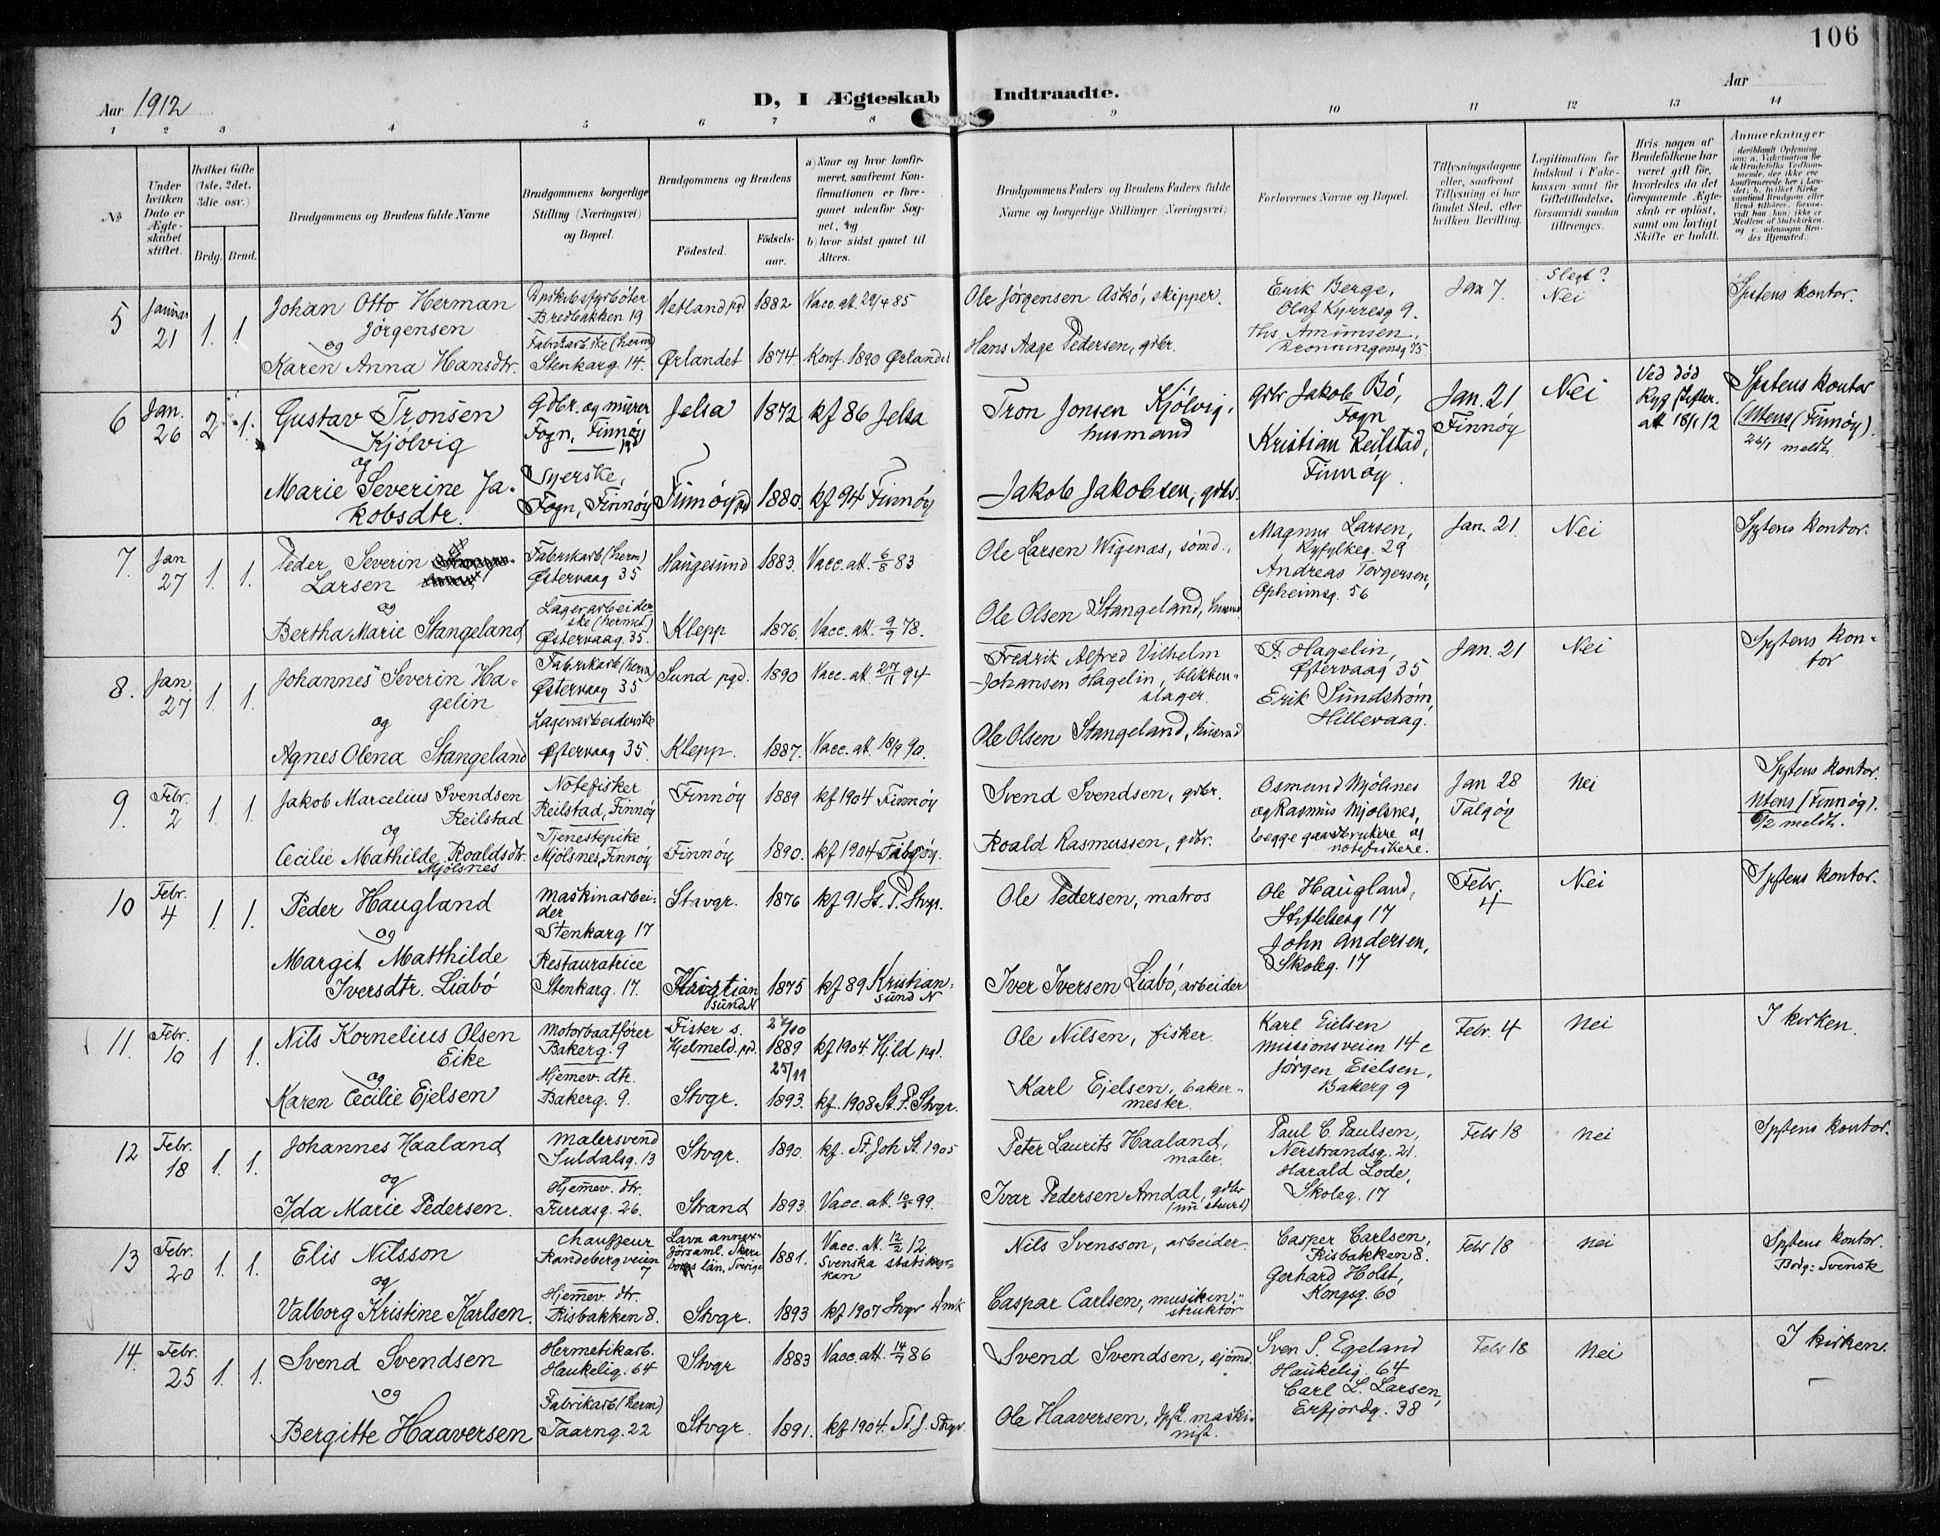 106
Aar 1912
D, I Ægteskab Indtraadte.
Aar
1 2 3 4 5 6 7 8 9 10 11 12 13 14
No
Under hvilken Dato er Ægteskabet stiftet.
Hvilket Gifte (1ste, 2det, 3die osv.)
Brdg. Brud.
Brudgommens og Brudens fulde Navne
Brudgommens borgerlige Stilling (Næringsvei) og Bopæl.
Brudgommens og Brudens
Fødested. Fødselsaar.
a) Naar og hvor konfirmeret, saafremt Konfirmationen er foregaaet udenfor Sognet, og
b) hvor sidst gaaet til Alters.
Brudgommens Faders og Brudens Faders fulde Navne og borgerlige Stillinger (Næringsvei)
Forlovernes Navne og Bopæl.
Tillysningsdagene eller, saafremt Tillysning ei har fundet Sted, efter hvilken Bevilling.
Legitimation for Indskud i Enkekassen samt for Giftetilladelse, forsaavidt saadan tiltrænges.
Hvis nogen af Brudefolkene har været gift før, hvorledes da det foregaaende Ægteskab er opløst, samt om lovligt Skifte er holdt.
Anmærkninger
5 Januar 21 1. 1
Johan Otto Herman Jørgensen
Bredbakken 19
1882 Vacc. att. 29/4 85
Ole Jørgensen Askø, skipper.
Erik Berge, Olaf Kyrresg 9.
Jan 7. Slegt? Nei
Spstens kontor.
og
Karen Anna Hansdtr.
Stenkarg. 14.
Ørlandet 1874 Konf. 1890 Ørlandet
Hans Aage Pedersen, gdbr.
6 Jan. 26 2 1.
Gustav Tronsen Kjølvig
Gdbr. og murer Fogn, Finnøy
Jelsa 1872 kf 86 Jelsa
Tron Jonsen Kjølvig, husmand
gdbr Jakob Bø, Fogn
Kristian Reilstad, Finnøy.
Jan. 21 Finnøy
Nei
Ved død
att 18/1 12
Spstens kontor
Utens (Finnøy).
26/1 meldt.
og
Marie Severine Jakobsdtr.
Syerske, Fogn, Finnøy
Finnøy pgd 1880. kf 94 Finnøy
Jakob Jakobsen, gdbr.
7. Jan 27 1. 1.
Peder Severin Larsen
Fabrikarb (herm) Østervaag 35
Haugesund 1883. Vacc. att. 6/8 83
Ole Larsen Wigenæs, sømd.,
Magnus Larsen, Ryfylkeg. 29
Andreas Torgersen, Opheimsg. 56
Jan. 21. Nei
Spstens kontor.
og
Bertha Marie Stangeland
Lagerarbeiderske (hermet.) Østervaag. 35.
Klepp 1876. Vacc. att. 9/9 78.
Ole Olsen Stangeland, husmd
8. Jan. 27 1. 1.
Johannes Severin Hagelin
Fabrikarb (herm) Østervaag 35
Sund pgd. 1890 Vacc. att 27/11 94
Fredrik Alfred Vilhelm Johansen Hagelin, blikkenslager.
F. Hagelin, Østervaag 35
Erik Sundstrøm, Hillevaag.
Jan. 21 Nei
Spstens kontor
og
Agnes Olena Stangeland
Lagerarbeiderske Østervaag 35.
Klepp. 1887. Vacc. att. 18/9 90.
Ole Olsen Stangeland, husmd
9. Febr. 2 1. 1.
Jakob Marcelius Svendsen Reilstad
Notefisker Reilstad, Finnøy
Finnøy 1889 kf 1904 Finnøy
Svend Svendsen, gdbr.
Osmund Mjølsnes og Rasmus Mjølsnes, begge gaardbrukere og notefiskere.
Jan 28 Talgøy
Nei
Spstens kontor.
Utens (Finnøy).
6/2 meldt.
og
Cecilie Mathilde Roaldsdtr. Mjølsnes
Tjenestepike Mjølsnes, Finnøy
Finnøy 1890. kf 1904 Talgøy.
Roald Rasmussen, gdbr.
10 Febr. 4 1. 1.
Peder Haugland
Maskinarbeider Stenkarg 17
Stavgr. 1876 kf 91 St. P. Stvgr.
Ole Pedersen, matros
Ole Haugland, Stiftelsesg 17
John Andersen, Skoleg. 17
Febr. 4 Nei
Spstens kontor.
og
Margit Matthilde Iversdtr. Liabø
Restauratrice Stenkarg. 17.
Kristiansund N 1875 kf 89 Kristiansund N
Iver Iversen Liabø, arbeider
11. Febr. 10 1 1.
Nils Kornelius Olsen Eike
Motorbaatfører Bakerg. 9
Fister s. Hjelmeld. pd. 27/10 1889 kf 1904. Hjld pgd.
Ole Nilsen, fisker.
Karl Eielsen Missionsveien 14 c
Jørgen Eielsen, Bakerg 9
Febr. 4 Nei
I kirken.
og
Karen Cecilie Ejelsen
Hjemev. dtr. Bakerg. 9.
Stvgr. 25/11 1893. kf. 1908 St. P. Stvgr.
Karl Ejelsen, bakermester.
12 Febr. 18 1. 1.
Johannes Haaland
Malersvend Suldalsg. 13
Stvgr. 1890. kf. St. Joh St. 1905
Peter Laurits Haaland, maler.
Paul C. Paulsen, Nerstrandsg. 21.
Harald Lode, Skoleg. 17
Febr 18 Nei
Spstens kontor.
og
Ida Marie Pedersen.
Hjemmev. dtr. Furrasg. 26.
Strand 1893. Vacc. att. 10/5 99.
Ivar Pedersen Amdal, gdbr (nu stuert)
13 Febr. 20 1. 1.
Elis Nilsson
Chauffeur Randebergveien 7
Lava annexførsaml. Skaraborgs län. Sverige 1881. Vacc. att. 12/2 12. Svenska statskyrkan
Nils Svensson, arbeider.
Casper Carlsen, Risbakken 8.
Gerhard Holst, Kongsg. 60
Febr 18 Nei
Spstens kontor.
Brdg: Svensk
og
Valborg Kristine Karlsen.
Hjemmev. dtr. Risbakken 8.
Stvgr. 1893 kf 1907 Stvgr Dmk
Caspar Carlsen, musikinstruktør
14. Febr. 25 1. 1.
Svend Svendsen
Hermetikarb. Haukelig. 64
Stvgr 1883 Vacc. att. 14/7 86
Svend Svendsen, sjømd.
Sven S. Egeland Haukelig. 64
Carl L. Larsen, Erfjordg. 38
Febr 18 Nei
I kirken.
og
Bergitte Haaversen
Fabrikarb (herm) Taarng. 22
Stvgr. 1891. kf 1904. St. J. Stvgr.
Ole Haaversen, dpsk. maskinist.